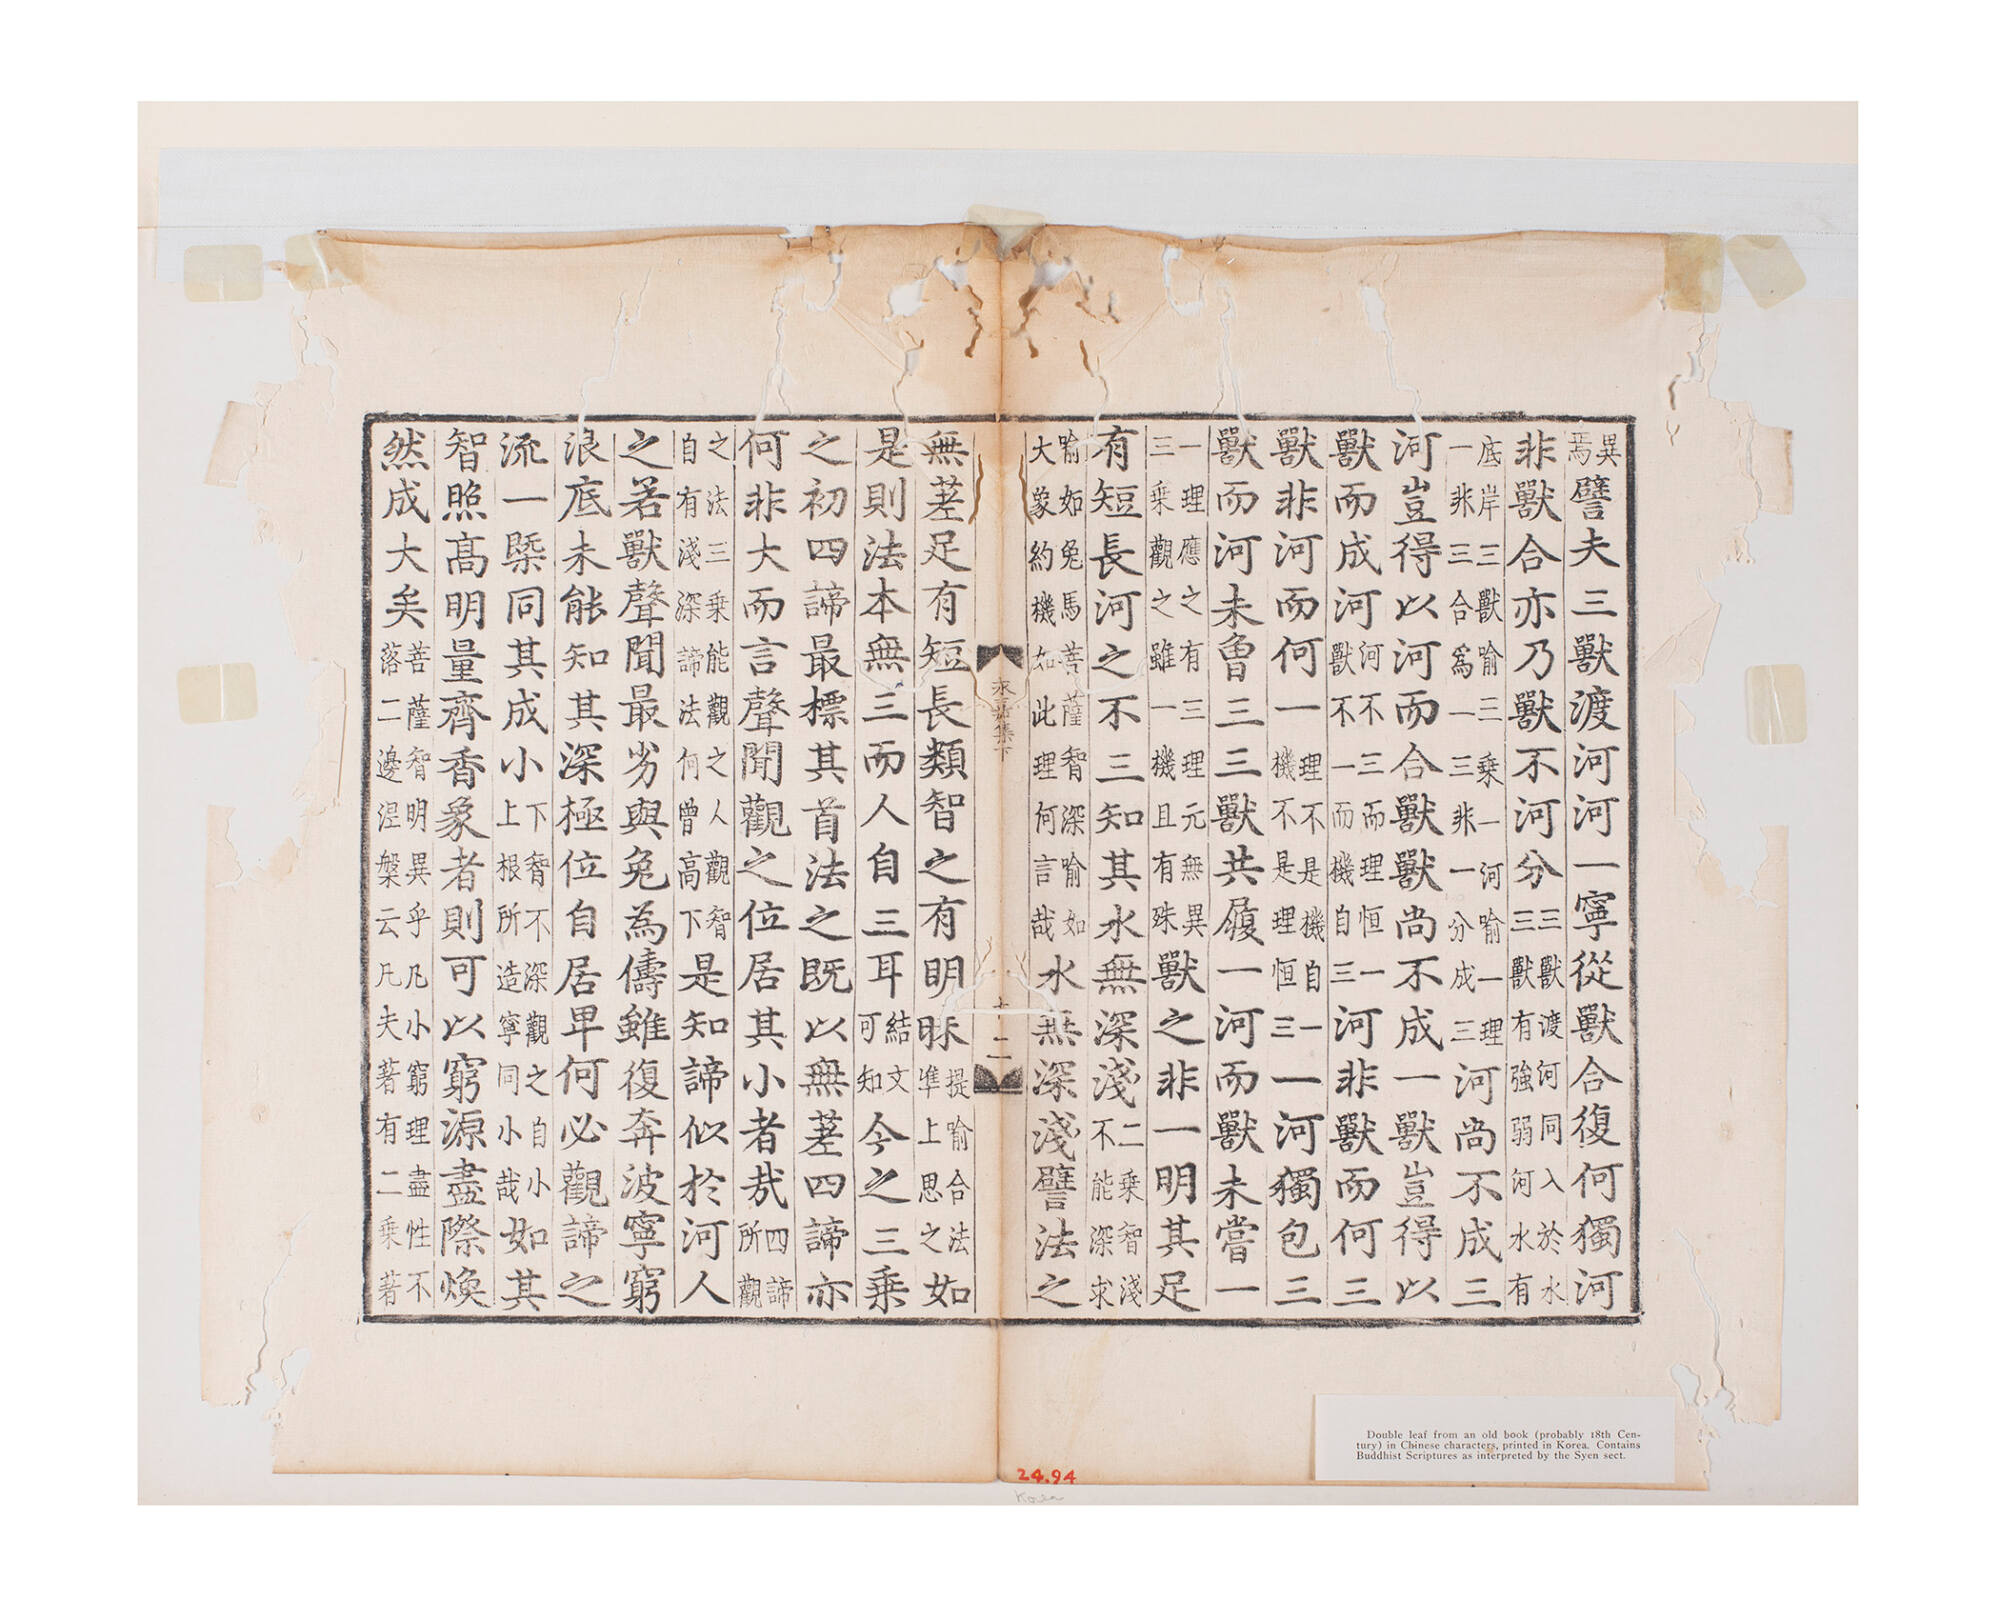 異焉譬夫三獸渡河河一寧從獸合復何獨河
非獸合亦乃獸不河分三獸渡河同入於水三獸有強弱河水有
底岸三獸喻三乘一河喻一理一非三合爲一三非一分成三河尚不成三
河豈得以河而合獸獸尚不成一獸豈得以
獸而成河河不三而理恒一獸不一而機自三河非獸而何三
獸非河而何一理不是機自一機不是理恒三一河獨包三
獸而河未曾三三獸共履一河而獸未嘗一
一理應之有三理元無異三乘觀之雖一機且有殊獸之非一明其足
有短長河之不三知其水無深淺二乘智淺不能深求
喻如兔馬菩薩智深喻如大象約機如此理何言哉水無深淺譬法之
永嘉集下 十二
無差足有短長類智之有明昧提喻合法準上思之如
是則法本無三而人自三耳結文可知今之三乘
之初四諦最標其首法之既以無差四諦亦
何非大而言聲聞觀之位居其小者哉四諦所觀
之法三乘能觀之人觀智自有淺深諦法何曾高下是知諦似於河人
之若獸聲聞最劣與兔為儔雖復奔波寧窮
浪底未能知其深極位自居卑何必觀諦之
流一槩同其成小下智不深觀之自小上根所造寧同小哉如其
智照高明量齊香象者則可以窮源盡際煥
然成大矣菩薩智明異乎凡小窮理盡性不落二邊涅槃云凡夫著有二乘著
Double leaf from an old book (probably 18th Cen-
tury) in Chinese characters, printed in Korea. Contains
Buddhist Scriptures as interpreted by the Syen sect.
24.94
Korea